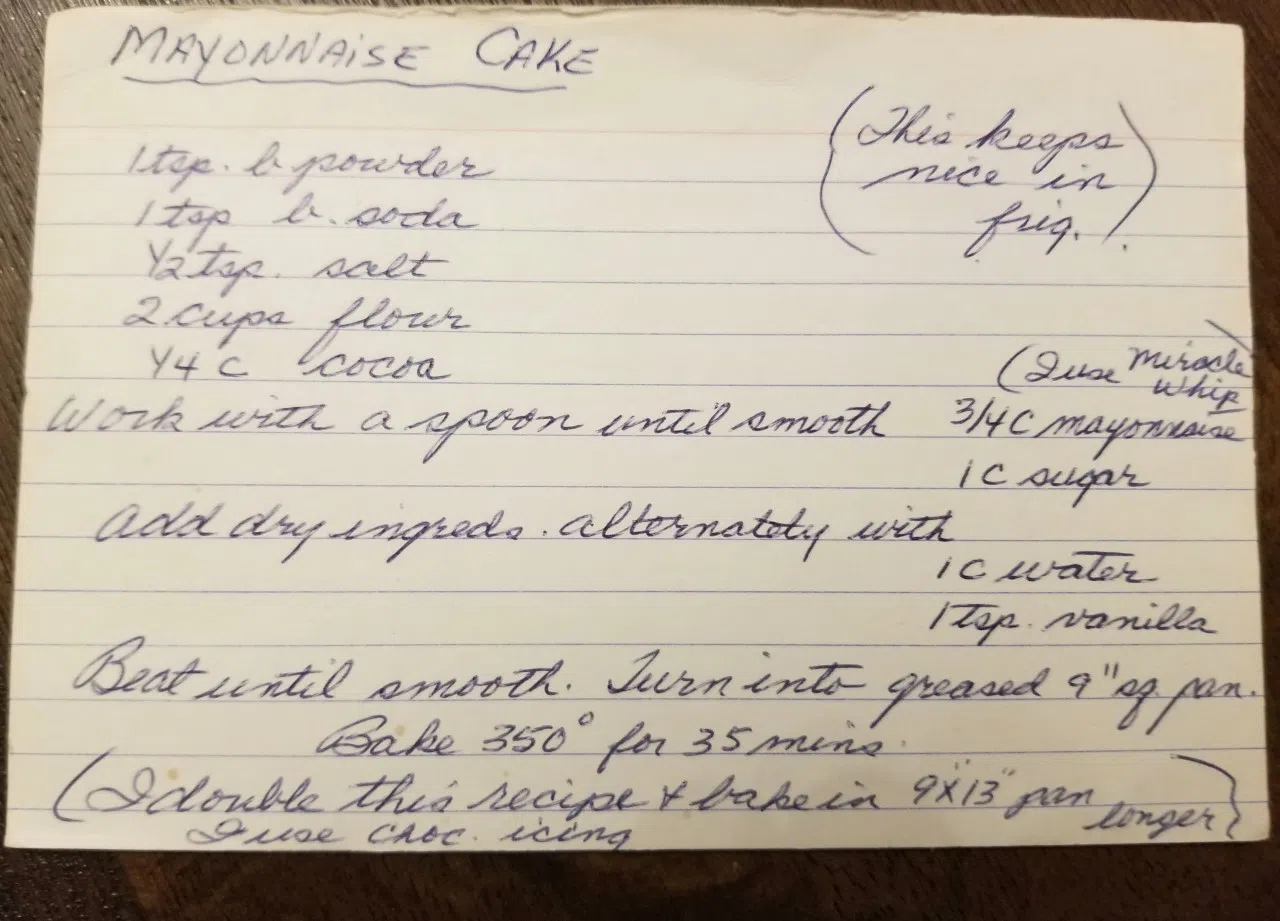 MAYONNAISE CAKE
(This keeps
nice in
frig.)
1 tsp. b. powder
1 tsp b. soda
1/2 tsp. salt
2 cups flour
1/4 C cocoa
(I use Miracle
Whip
Work with a spoon until smooth 3/4 C mayonnaise
1 C sugar
Add dry ingreds. alternately with
1 C water
1 tsp. vanilla
Beat until smooth. Turn into greased 9" sq. pan.
Bake 350° for 35 mins.
(I double this recipe & bake in 9"X13" pan
longer)
I use choc. icing